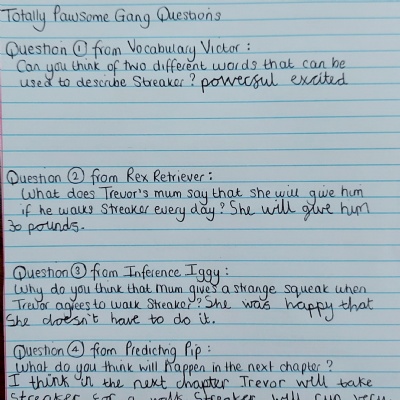 Totally Pawsome Gang Questions
Question ① from Vocabulary Victor :
Can you think of two different words that can be
used to describe Streaker ? powerful excited
Question ② from Rex Retriever :
What does Trevor's mum say that she will give him
if he walks Streaker every day ? She will give him
30 pounds.
Question ③ from Inference Iggy :
Why do you think that Mum gives a strange squeak when
Trevor agrees to walk Streaker ? She was happy that
She doesn't have to do it.
Question ④ from Predicting Pip :
What do you think will happen in the next chapter ?
I think in the next chapter Trevor will take
Streaker for a walk Streaker will run very